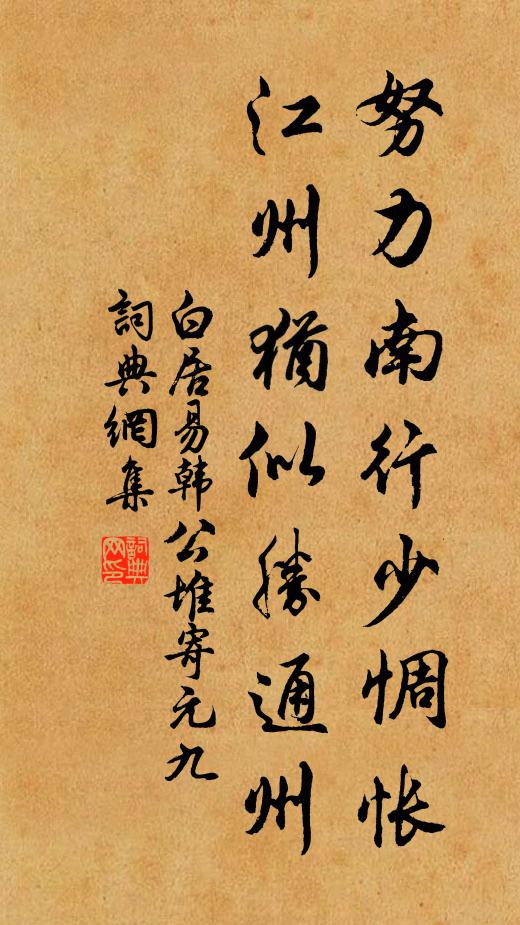 努力南行少惆怅
江州猶似勝通州
白居易韩公堆寄元九
詞典網集
詞典
网印